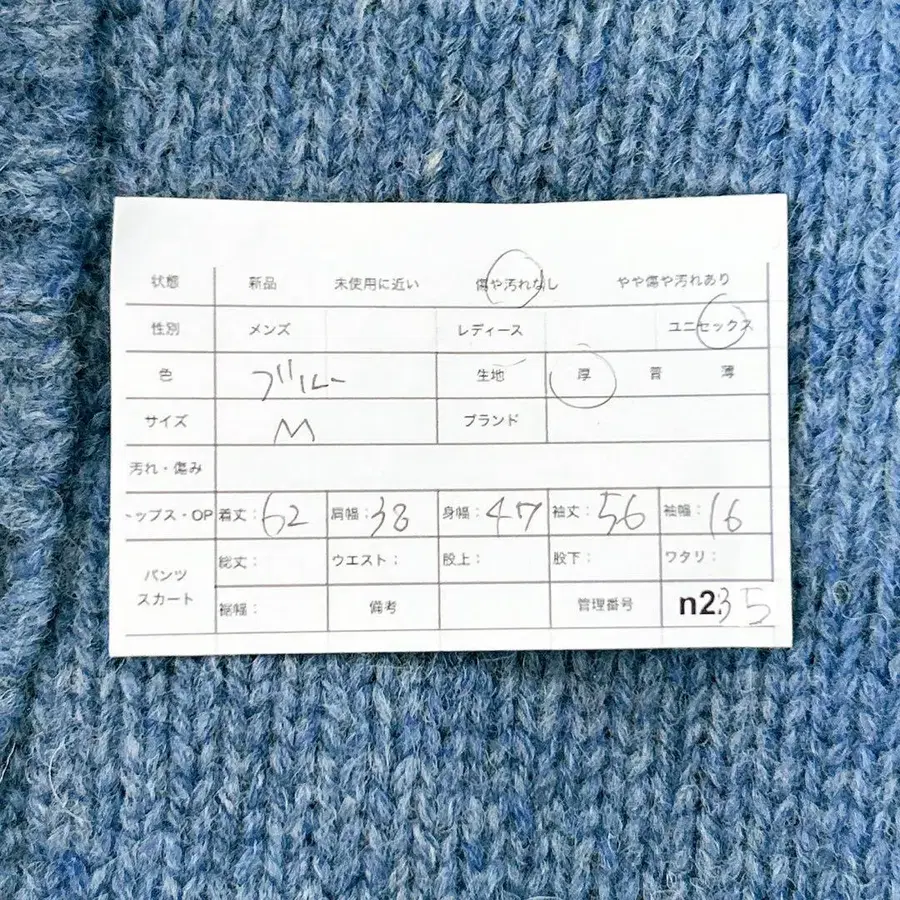 状態 新品 未使用に近い 傷や汚れなし やや傷や汚れあり
性別 メンズ レディース ユニセックス
色 ブルー 生地 厚 普 薄
サイズ M ブランド
汚れ・傷み
トップス・OP 着丈：62 肩幅：38 身幅：47 袖丈：56 袖幅：16
パンツ スカート 総丈： ウエスト： 股上： 股下： ワタリ：
裾幅： 備考 管理番号 n235